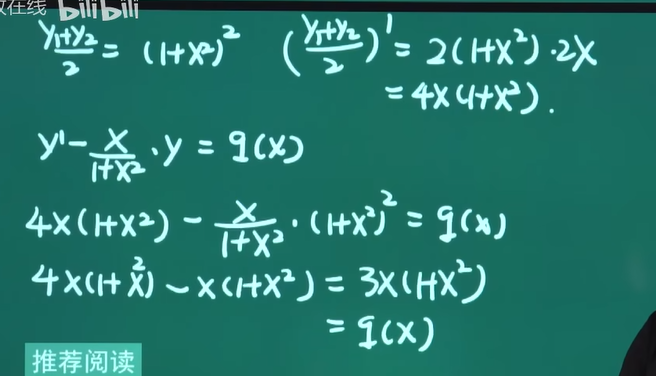 放在线 bilibili
(y₁+y₂)/2 = (1+x²)² ((y₁+y₂)/2)' = 2(1+x²)·2x
= 4x(1+x²).
y' - x/(1+x²)·y = q(x)
4x(1+x²) - x/(1+x²)·(1+x²)² = q(x)
4x(1+x²) - x(1+x²) = 3x(1+x²)
= q(x)
推荐阅读